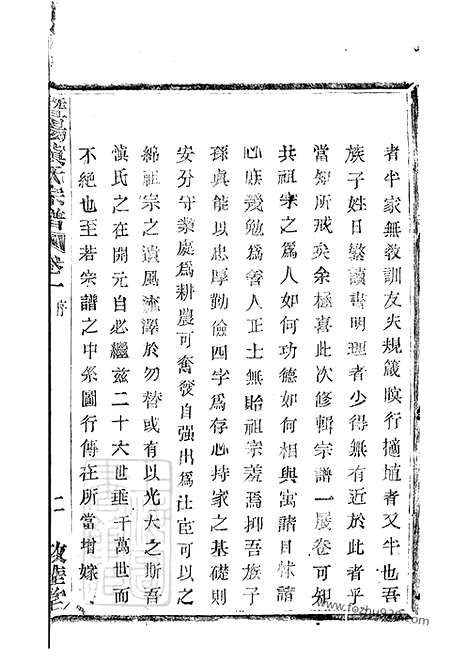 者半家無教訓友失規箴瞑行擿埴者又半也吾
族子姓日蕃讀書明理者少得無有近於此者乎
當知所戒矣余極喜此次修輯宗譜一展卷可知
共祖宗之為人如何功德如何相與寓諸目怵諸
心庶幾勉為善人正士無貽祖宗羞焉抑吾族子
孫真能以忠厚勤儉四字為存心持家之基礎則
安分守業處為耕農可奮發自强出為社宦可以之
綿祖宗之遺風流澤於勿替或有以光大之斯吾
滇氏之在開元自必繼茲二十六世垂千萬世而
不絶也至若宗譜之中系圖行傳在所當增嫁
氏宗譜 卷一 序 二
www.fozhu920.com